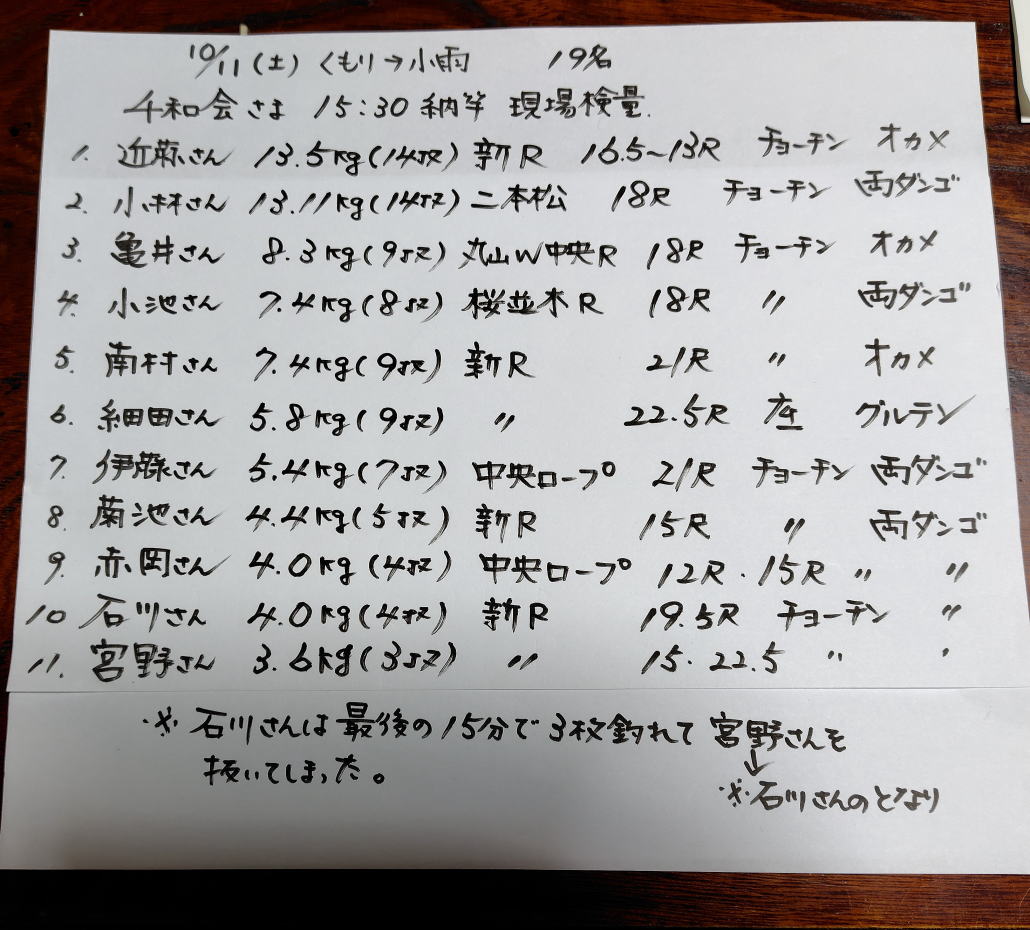 10/11(土) くもり→小雨 19名
千和会さま 15:30納竿 現場検量.
1. 近藤さん 13.5kg(14枚) 新R 16.5~13尺 チョーチン オカメ
2. 小林さん 13.11kg(14枚) 二本松 18尺 チョーチン 両ダンゴ
3. 亀井さん 8.3kg(9枚) 丸山W中央R 18尺 チョーチン オカメ
4. 小池さん 7.4kg(8枚) 桜並木R 18尺 〃 両ダンゴ
5. 南村さん 7.4kg(9枚) 新R 21尺 〃 オカメ
6. 細田さん 5.8kg(9枚) 〃 22.5尺 底 グルテン
7. 伊藤さん 5.4kg(7枚) 中央ロープ 21尺 チョーチン 両ダンゴ
8. 菊池さん 4.4kg(5枚) 新R 15尺 〃 両ダンゴ
9. 赤岡さん 4.0kg(4枚) 中央ロープ 12尺・15尺 〃 〃
10 石川さん 4.0kg(4枚) 新R 19.5尺 チョーチン 〃
11. 宮野さん 3.6kg(3枚) 〃 15・22.5 〃
※ 石川さんは最後の15分で3枚釣れて宮野さんを
抜いてしまった。
↓
※石川さんのとなり